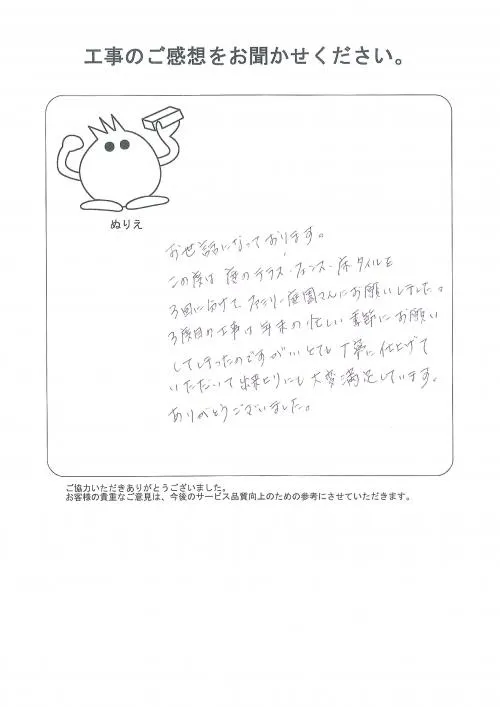 工事のご感想をお聞かせください。
ぬりえ
お世話になっております。
この度は 庭のテラス・フェンス・床タイルを
3回に分けて、ファミリー庭園さんにお願いしました。
3度目の工事は年末の忙しい季節にお願い
してしまったのですが とても丁寧に仕上げて
いただいて 出来上りにも 大変満足しています。
ありがとうございました。
ご協力いただきありがとうございました。
お客様の貴重なご意見は、今後のサービス品質向上のための参考にさせていただきます。